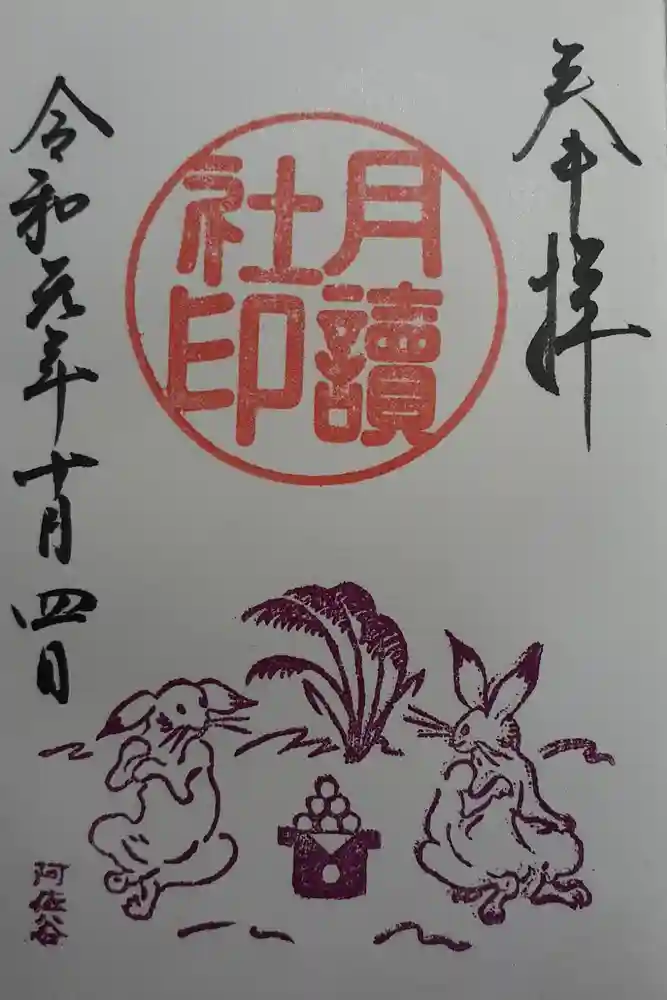 奉拝
月讀
社印
令和元年十月四日
阿佐谷